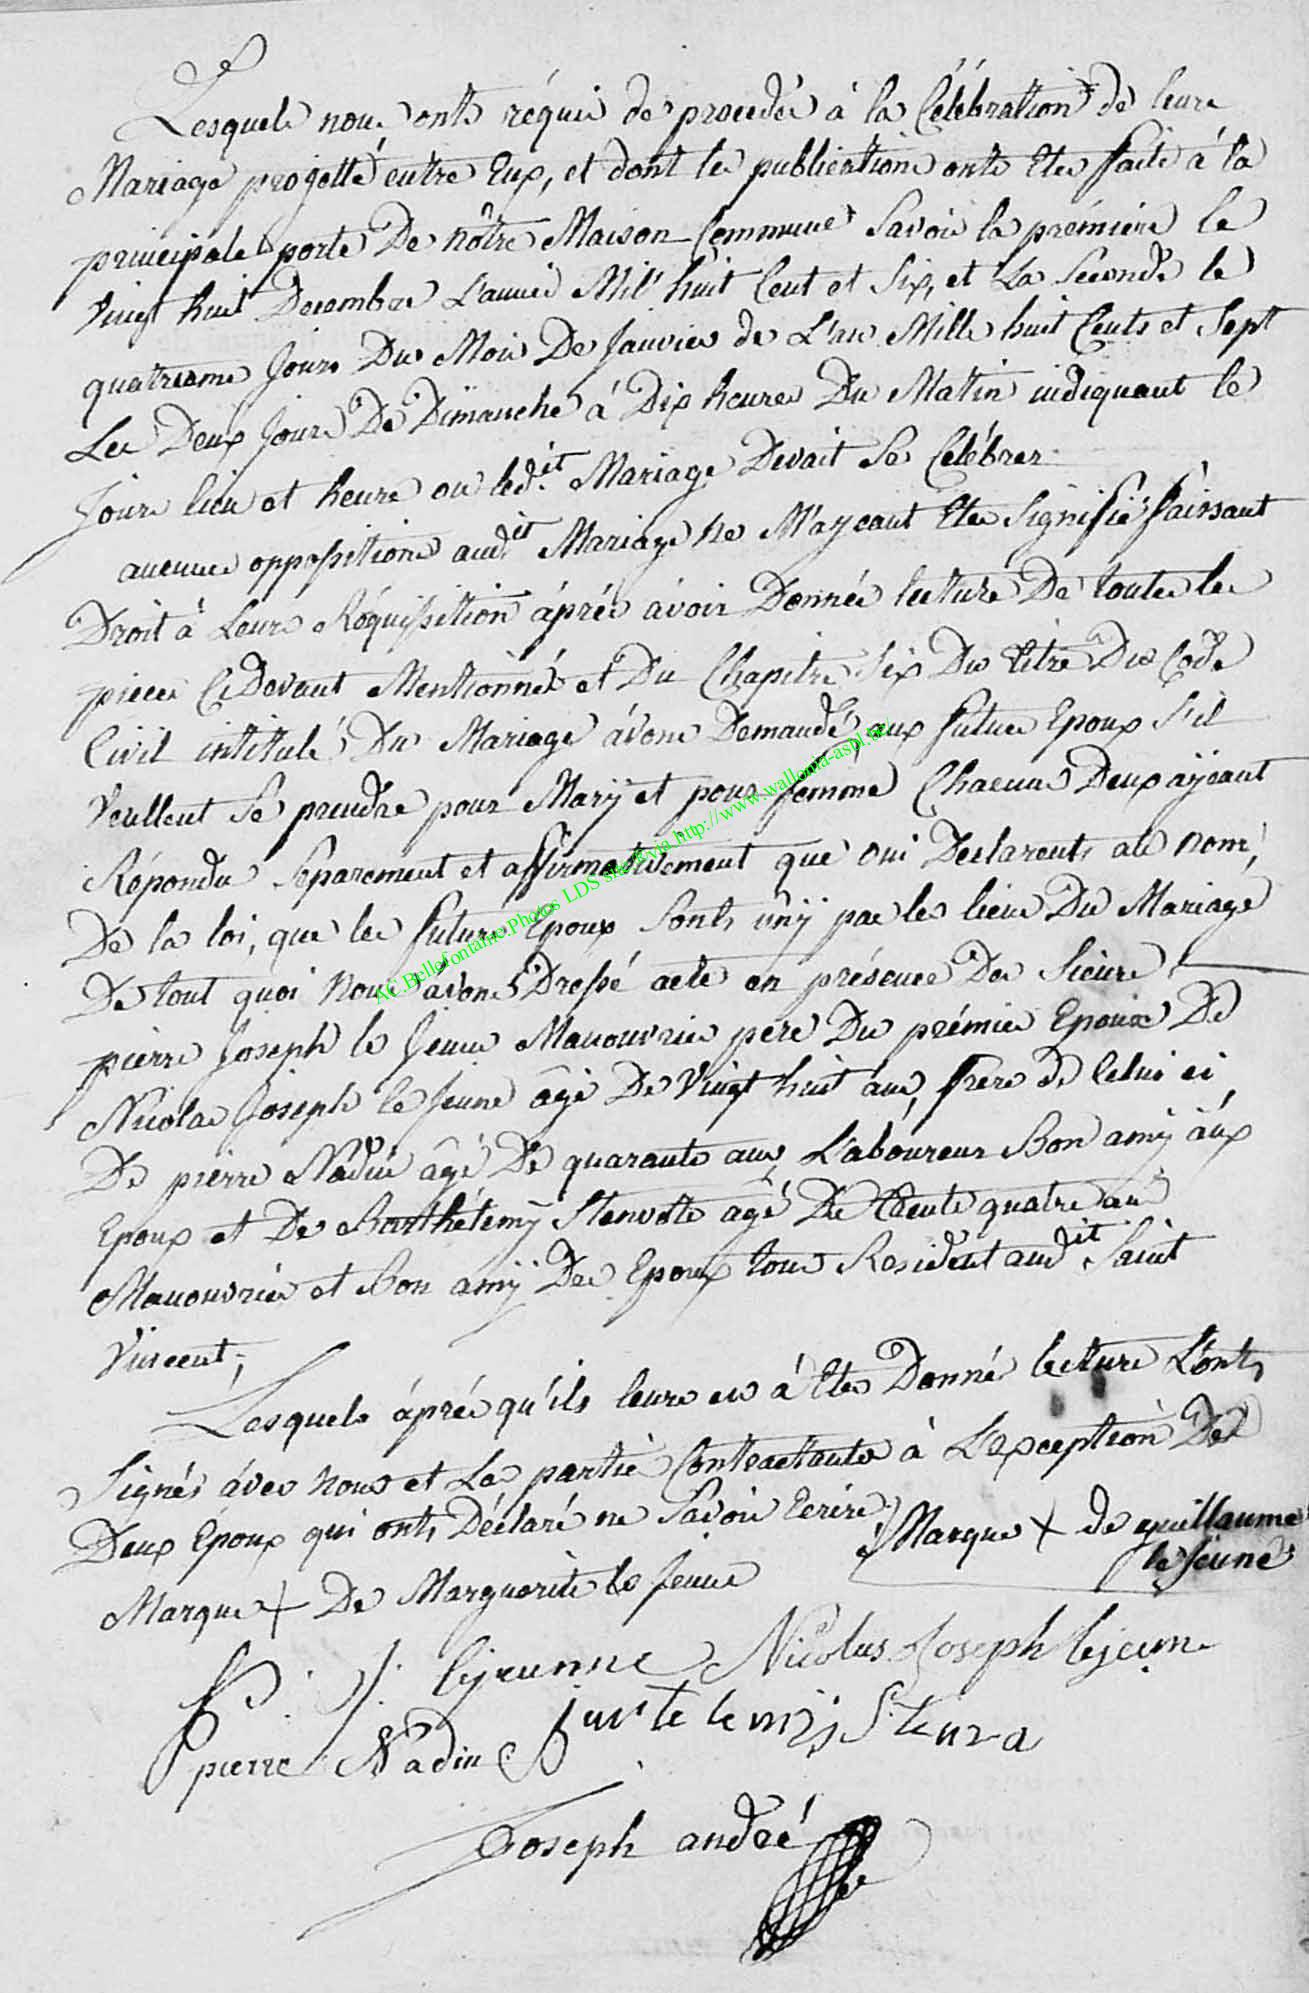 Lesquels nous onts réquis de procedés à la Célébration de leurs
Mariage projetté entre Eux, et dont les publications onts Etes faits à la
principale porte De nôtre Maison Commune Savoir la prémiere le
Vingt huit Decembre L'année Mil huit Cent et Six, et La Seconde le
quatrieme Jours Du Mois De Janvier de L'an Mille huit Cents et Sept
Les Deux Jours De Dimanche à Dix heures Du Matin indiquant le
Jours lieu et heure ou ledit Mariage Devait Se Célébrer
aucune oppositions audit Mariage ne M'ayeant Etes Signifié faissant
Droit à Leurs Réquisition áprés avoir Donnés lecture De toutes les
pieces Ci Devant Mentionnés et Du Chapitre Six Du titre Du Code
Civil intitulé Du Mariage ávons Demandé aux futurs Epoux S'il
Veullent Se prendre pour Marÿ et pour femme Chacuns Deux ayeant
Répondu Séparement et affirmativement que oui Declarents au nom
De la loi, que les futurs Epoux Sonts unÿ par les liens Du Mariage
De tout quoi Nous ávons Dressé acte en presence De Sieurs
pierre Joseph le Jeune Manouvrier pere Du prémier Epoux De
Nicolas Joseph le Jeune âgé De Vingt huit ans, frere de Celui ci
De pierre Nadin âgé De quarante ans, L'aboureur Bon amÿ áux
Epoux et De Barthélemÿ Stenvote âgé De trente quatre an
Manouvrier et Bon amÿ Des Epoux tous Resident audit Saint
Vincent,
Lesquels áprés qu'ils leurs en à Etes Donnés lecture L'onts
Signés ávec nous et Les partie Contractante à L'exception Des
Deux Epoux qui onts Déclaré ne Savoir Ecrire Marque + de guillaume
le jeune
Marque + De Marguerite le Jeune
P. J. lejeunne Nicolas Joseph lejeun
pierre Nadin Bartelemÿ Stenva
Joseph andré
AC.Bellefontaine.Photos LDS sites via http://www.wallonia-asbl.be/